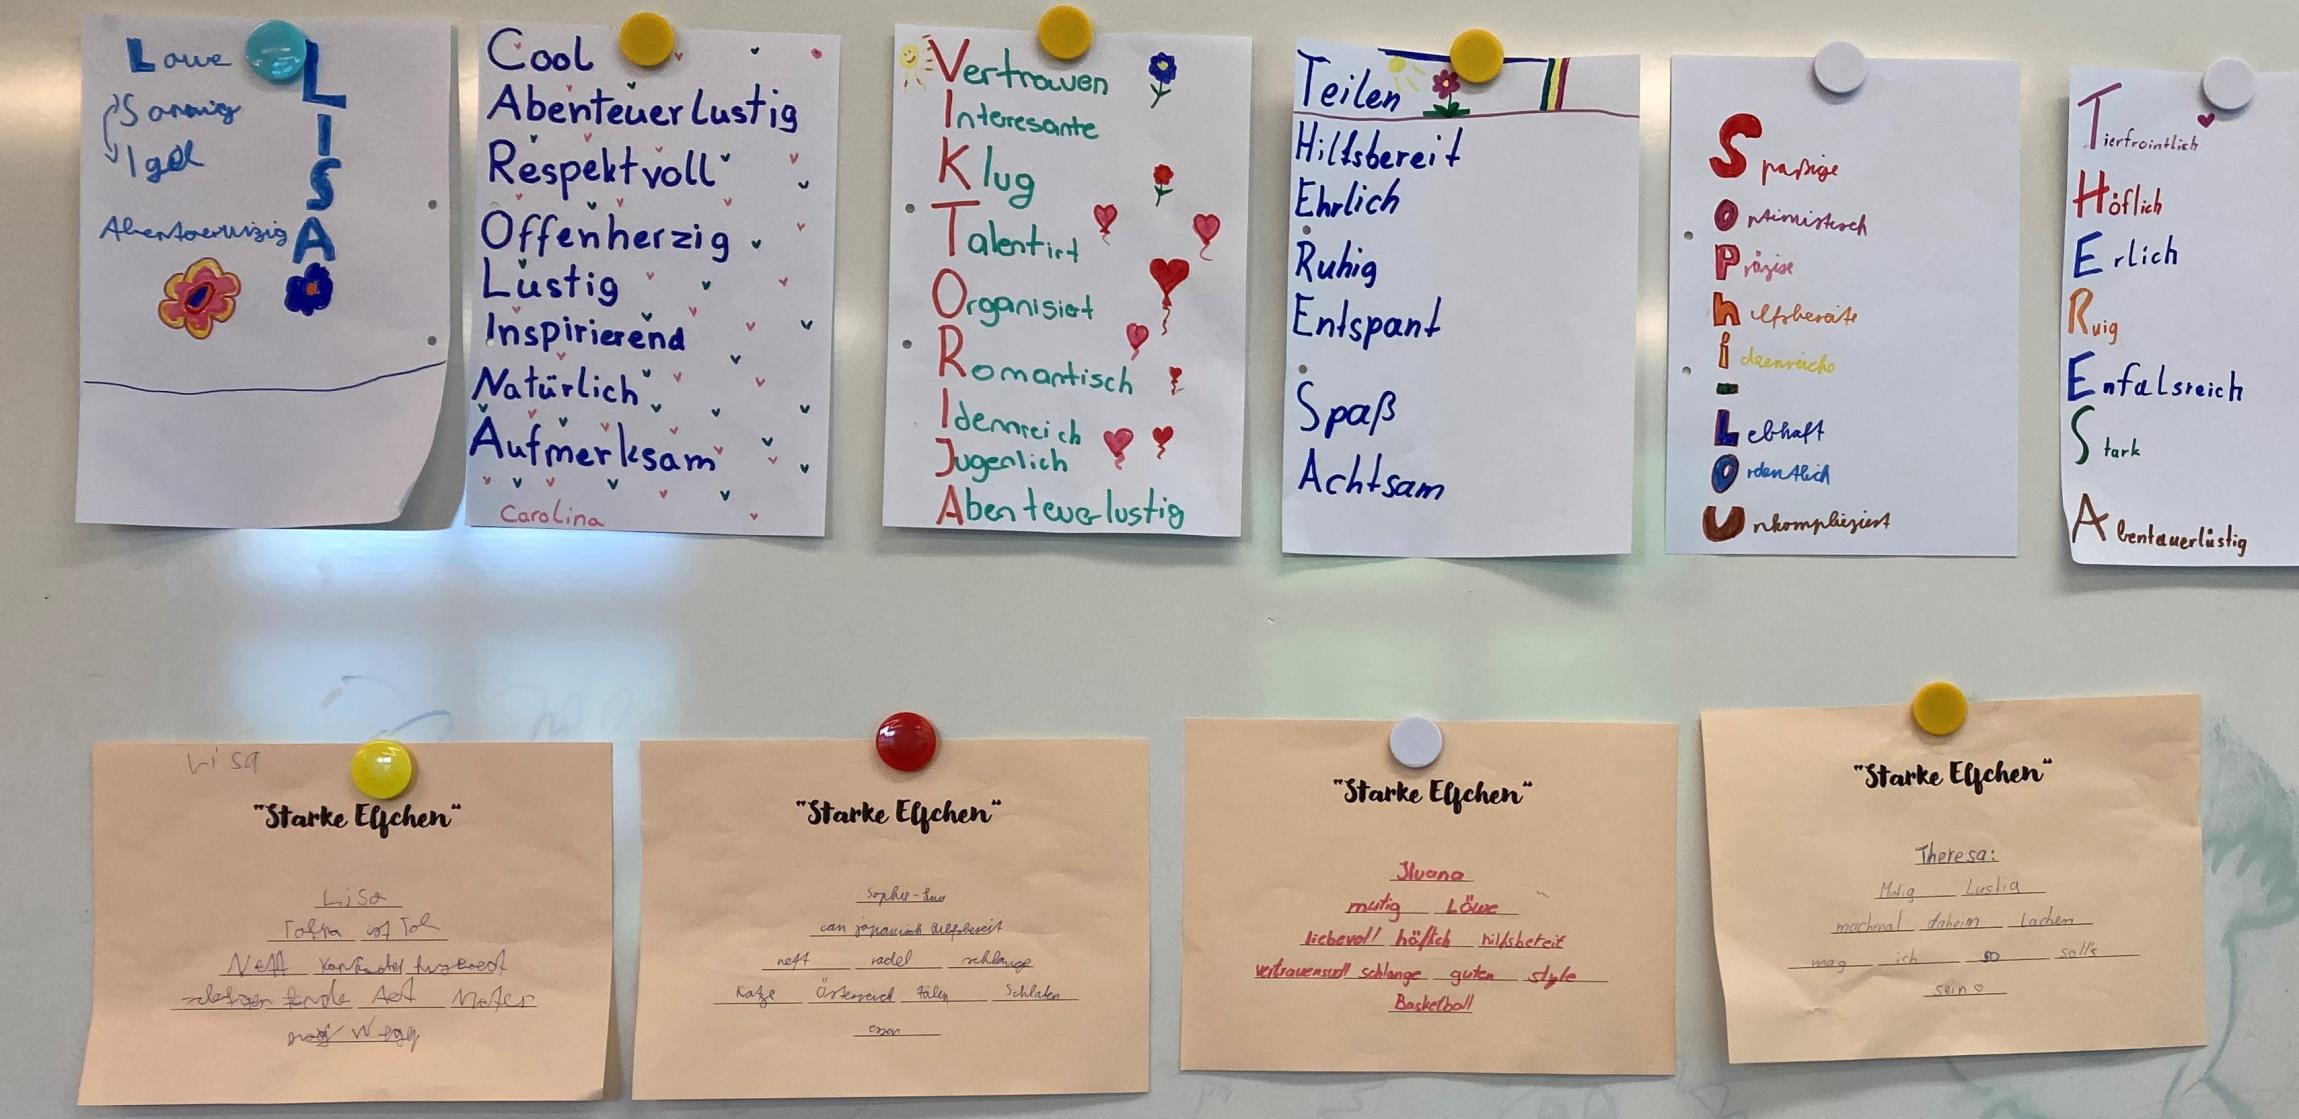 Löwe
Igel
LISA
Cool
Abenteuerlustig
Respektvoll
Offenherzig
Lustig
Inspirierend
Natürlich
Aufmerksam
Carolina
Vertrauen
Interesante
Klug
Talentirt
Organisiert
Romantisch
Idennreich
Jugenlich
Abenteuerlustig
Teilen
Hilfsbereit
Ehrlich
Ruhig
Entspant
Spaß
Achtsam
Spaßige
optimistisch
Präzise
hilfsbereite
ideenreiche
-
Lebhaft
Ordentlich
Unkompliziert
Tierfrointlich
Höflich
Erlich
Ruig
Enfalsreich
Stark
Abentauerlüstig
Lisa
"Starke Elfchen"
Lisa
Nett
"Starke Elfchen"
Sophie-Lou
can japanisch hilfsbereit
nett radel schlange
Katze Österreich Schlafen
essen
"Starke Elfchen"
Iluana
mutig Löwe
liebevoll höflich hilfsbereit
schlange guten style
Basketball
"Starke Elfchen"
Theresa:
Mutig Lustig
machmal daheim Lachen
mag ich so solls
sein